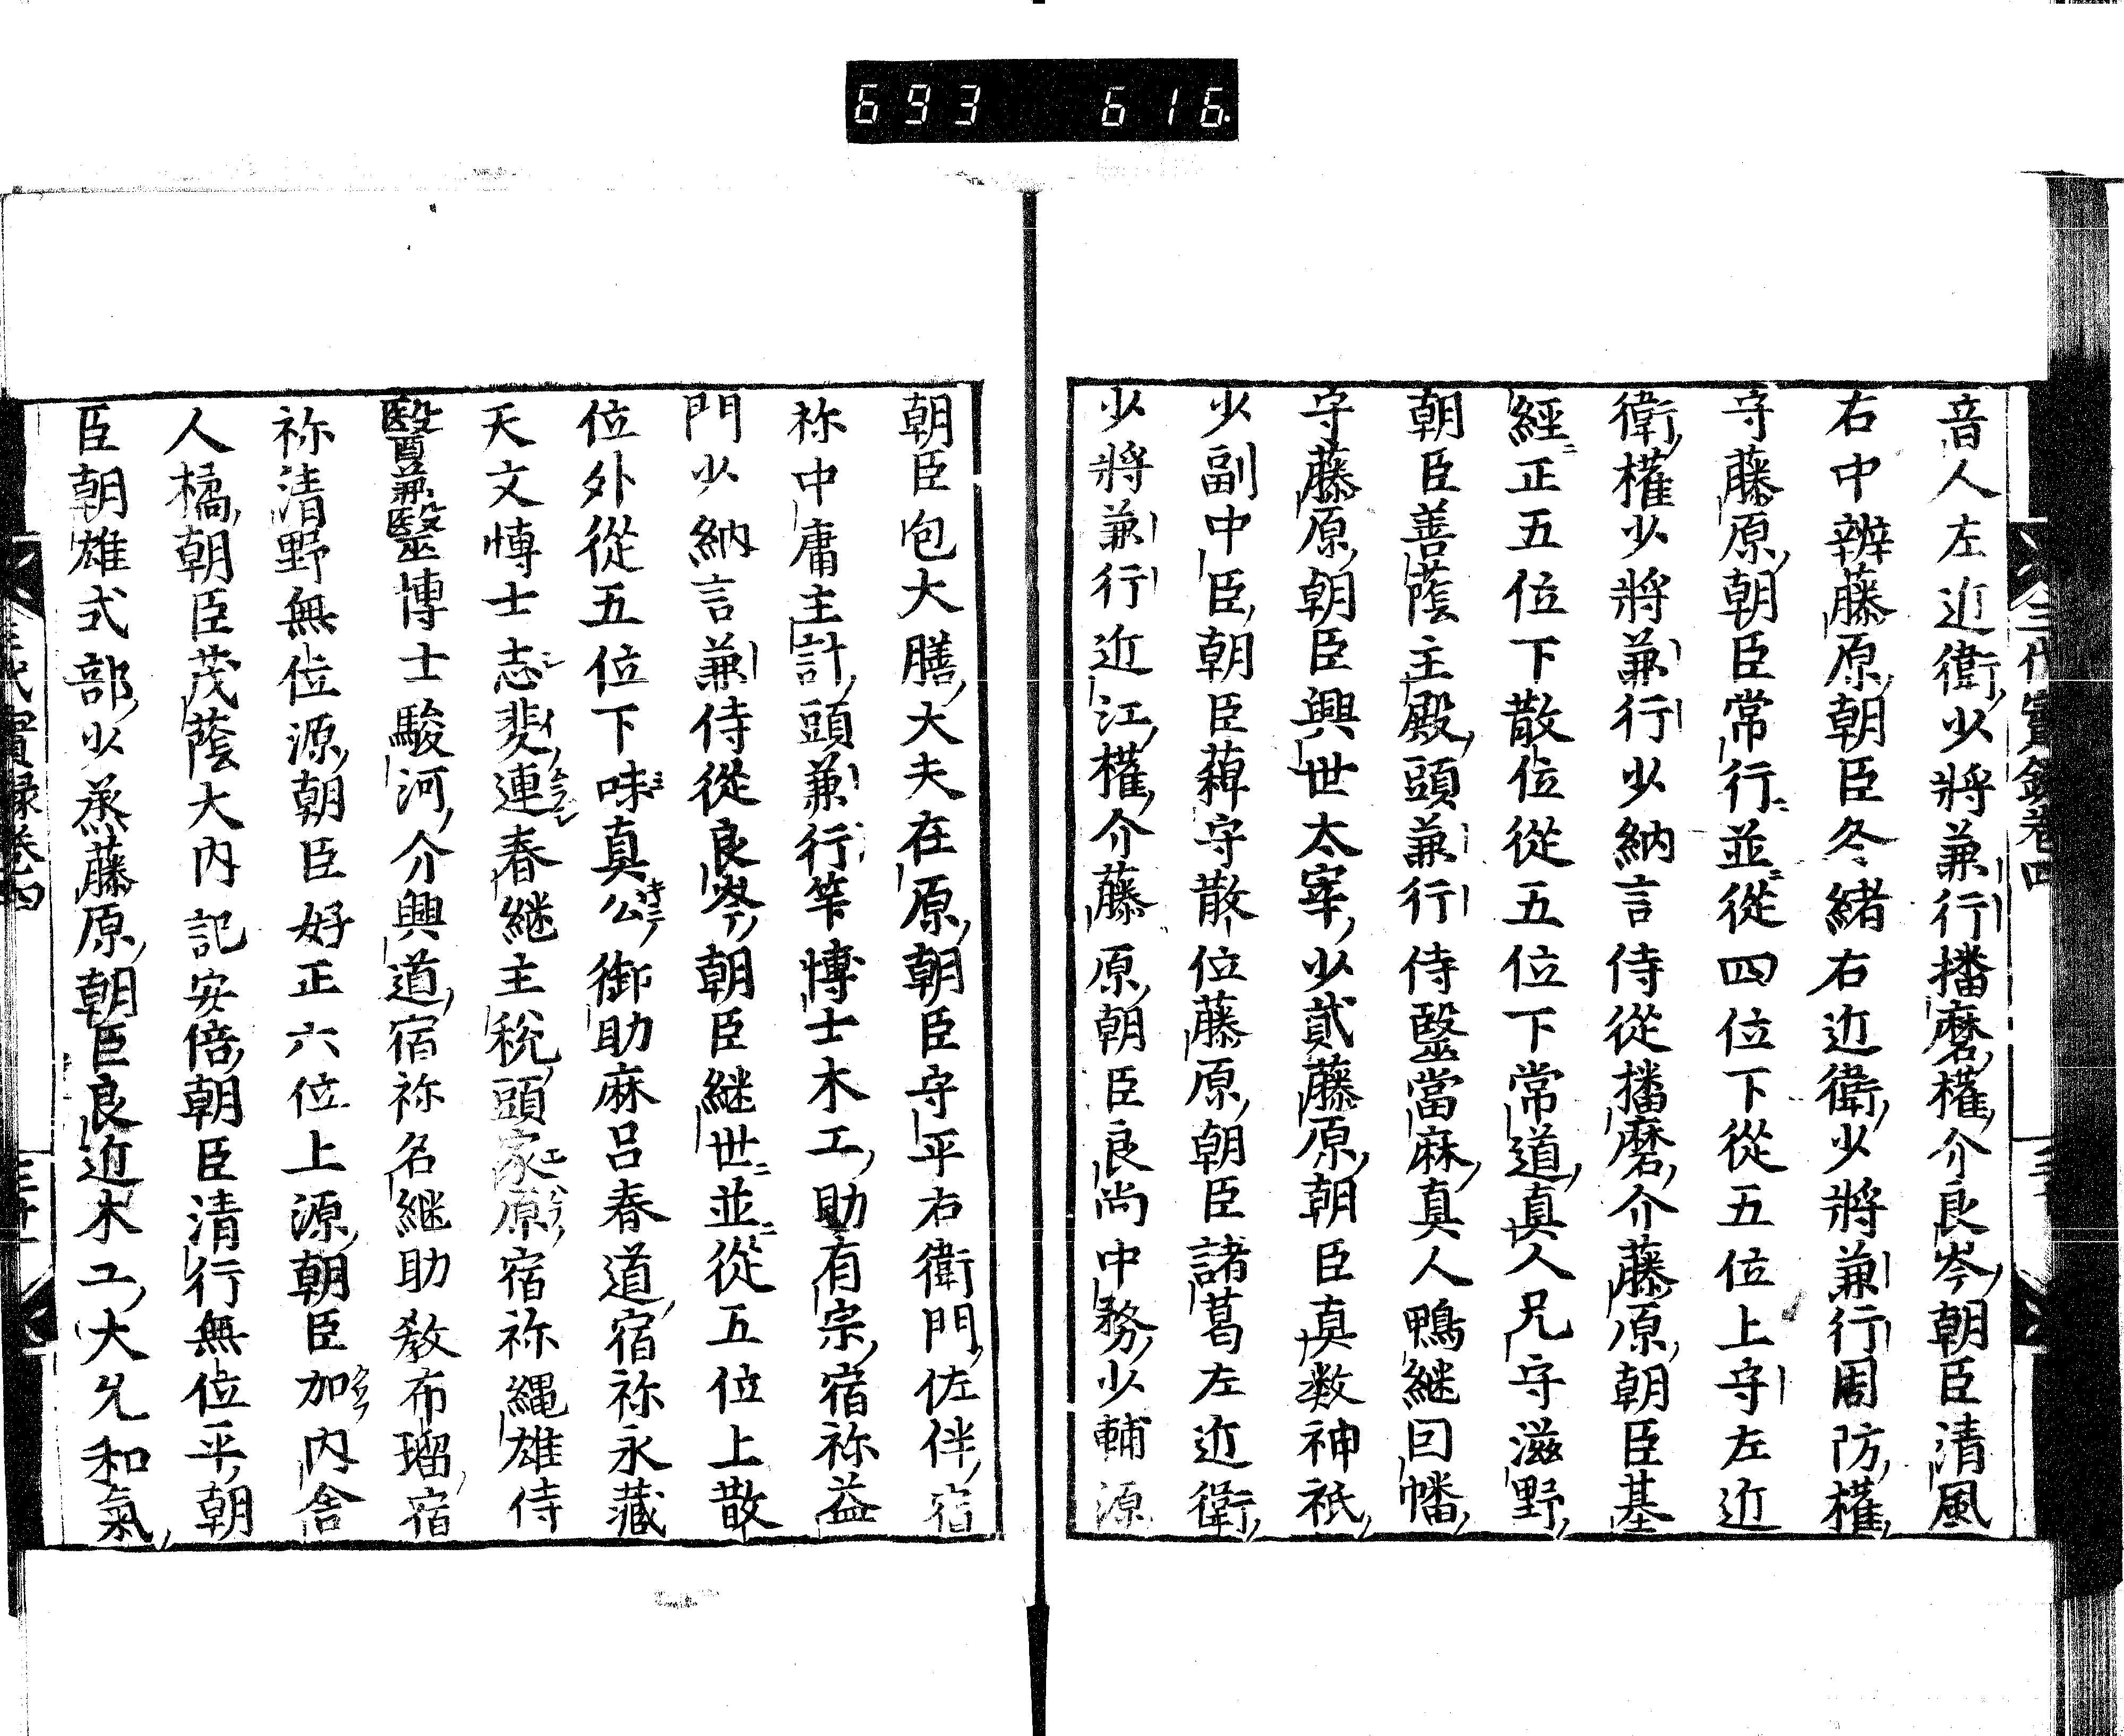 693 616
音人左近衛少將兼行播磨權介良岑朝臣清風
右中辨藤原朝臣冬緒右近衛少將兼行周防權
守藤原朝臣常行並從四位下從五位上守左近
衛權少將兼行少納言侍從播磨介藤原朝臣基
經正五位下散位從五位下常道真人兄守滋野
朝臣善蔭主殿頭兼行侍醫當麻真人鴨継回幡
守藤原朝臣興世太宰少貳藤原朝臣真数神祇
少副中臣朝臣薭守散位藤原朝臣諸葛左近衛
少將兼行近江權介藤原朝臣良尚中務少輔源
朝臣包大膳大夫在原朝臣守平右衛門佐伴宿
祢中庸主計頭兼行筭博士木工助有宗宿祢益
門少納言兼侍從良岑朝臣継世並從五位上散
位外從五位下味真公御助麻呂春道宿祢永藏
天文博士志斐連春継主税頭家原宿祢縄雄侍
醫兼醫博士駿河介興道宿祢名継助教布瑠宿
祢清野無位源朝臣好正六位上源朝臣加内舎
人橘朝臣茂蔭大内記安倍朝臣清行無位平朝
臣朝雄式部少丞藤原朝臣良近木工大允和氣
三代實録卷四